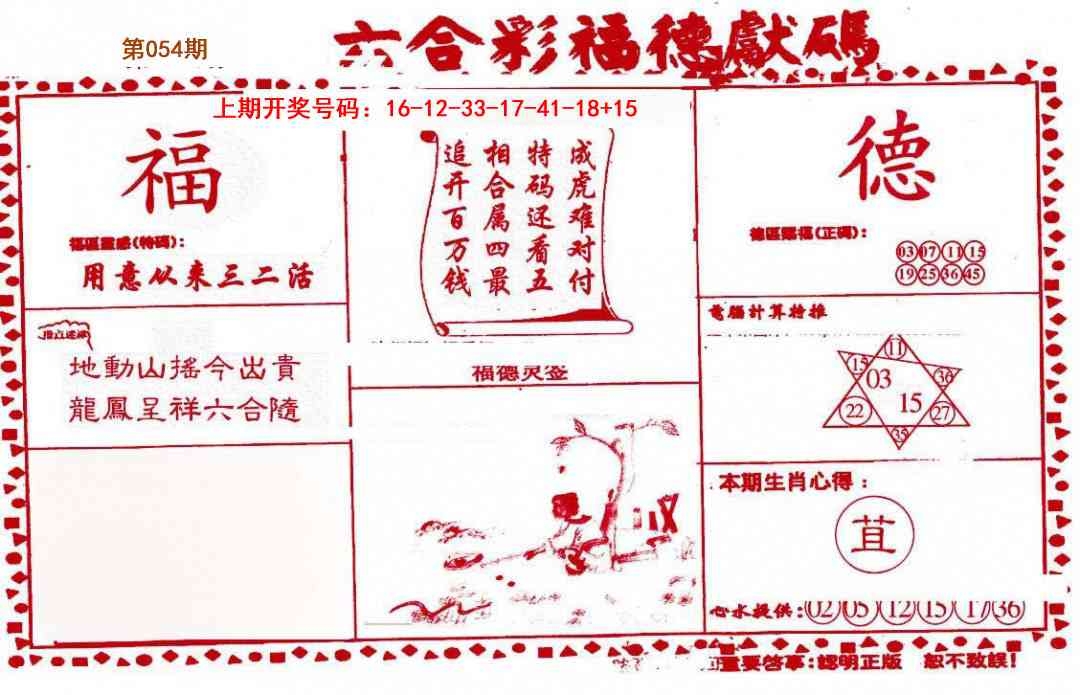 第054期
六合彩福德獻碼
上期开奖号码：16-12-33-17-41-18+15
福
福區靈感(特碼)：
用意以来三二活
地動山搖今出貴
龍鳳呈祥六合隨
成虎难对付
特码还看五
相合属四最
追开百万钱
福德灵签
德
德區賜福(正碼)：
03 07 11 15
19 25 36 45
電腦計算特推
11
15 03 36
22 15 27
35
本期生肖心得：
苴
心水提供：02 05 12 15 17 36
重要啓事：認明正版 恕不致誤！